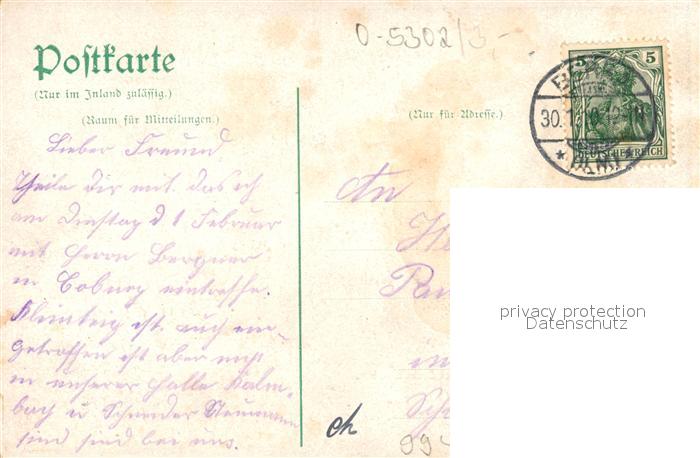 O-5302/3,-
Postkarte
(Nur im Inland zulässig.)
(Raum für Mitteilungen.)
(Nur für Adresse.)
5 5
30.1
DEUTSCHES REICH
Lieber Freund
Theile dir mit, das ich
am Dinstag d 1 Februar
mit Herrn Bergner
in Coburg eintreffe.
ist auch ein-
getroffen ist aber nicht
in unserer Halle Kalm-
bach u Schneider Neumann
sind sind bei uns.
An
in
privacy protection
Datenschutz
ch
99